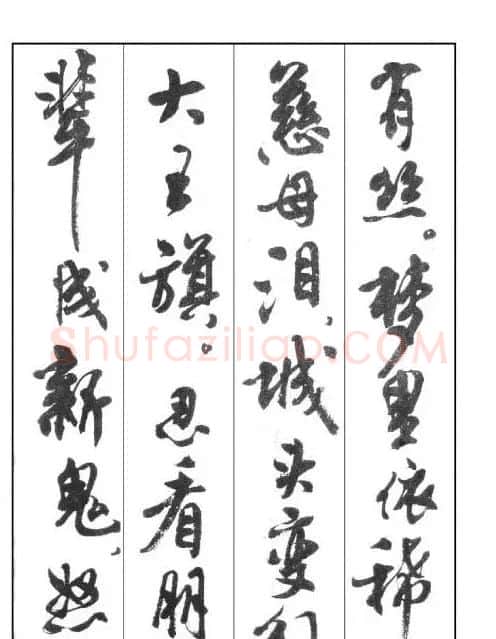 有丝。梦里依稀
慈母泪，城头变
大王旗。忍看朋
辈成新鬼，怒
Shufaziliao.COM